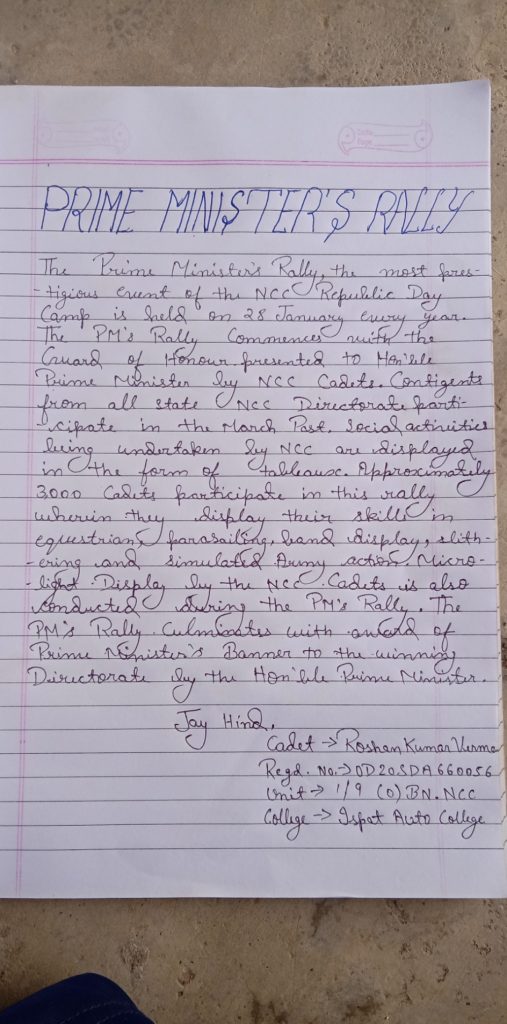 Date
Page
PRIME MINISTER'S RALLY
The Prime Minister's Rally, the most pres-
-tigious event of the NCC Republic Day
Camp is held on 28 January every year.
The PM's Rally Commences with the
Guard of Honour presented to Hon'ble
Prime Minister by NCC Cadets. Contigents
from all state NCC Directorate parti-
-cipate in the March Past. Social activities
being undertaken by NCC are displayed
in the form of tableaux. Approximately
3000 Cadets participate in this rally
wherein they display their skills in
equestrian, parasailing, band display, slith-
-ering and simulated Army action. Micro-
-light Display by the NCC Cadets is also
conducted during the PM's Rally. The
PM's Rally Culminates with award of
Prime Minister's Banner to the winning
Directorate by the Hon'ble Prime Minister.
Jay Hind.
Cadet → Roshan Kumar Verma
Regd. No.→ OD20SDA660056
Unit → 1/9 (O) BN. NCC
College → Ispat Auto College